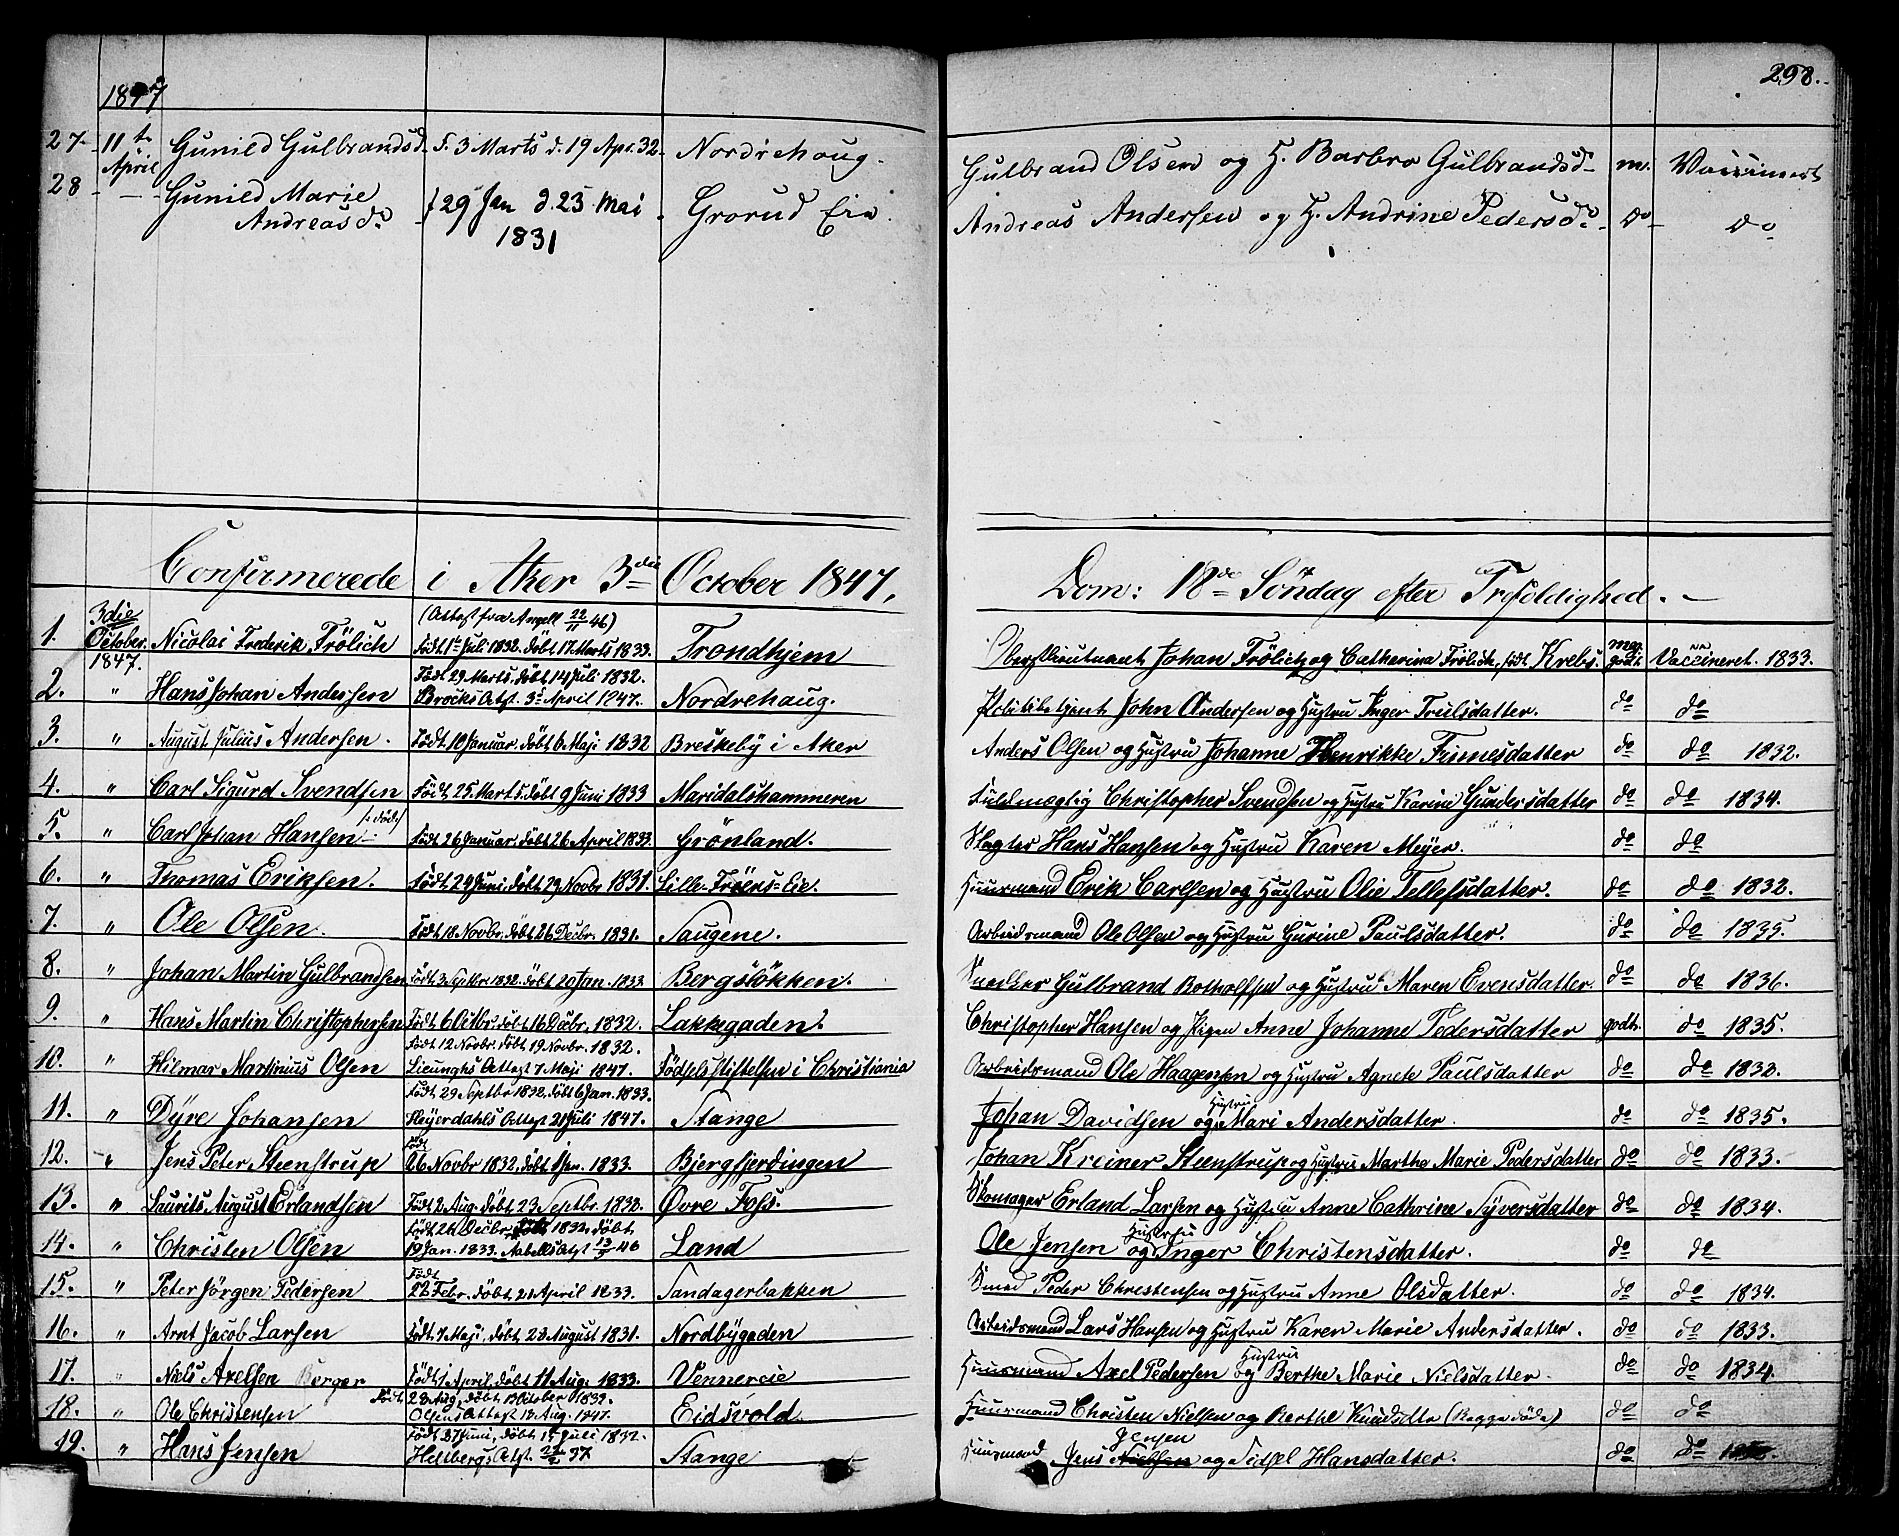 1847
298.
27. 11te April Gunild Gulbrandsd. f. 3 Marts d. 19 Apr. 32. Nordrehoug. Gulbrand Olsen og H. Barbro Gulbrandsd. m. Vaccinert
28 — Gunild Marie Andreasdr. f 29 Jan d. 23 Mai 1831 Grorud Eie. Andreas Andersen og H. Andrine Pedersdr. do do
Confirmerede i Aker 3die October 1847. Dom: 18de Söndag efter Trefoldighed.
1. 3die October 1847. Nicolai Frederik Frölich (Attest fra Angell 22/11 46) Födt 1te Juli 1832. döbt 17. Marts 1833. Trondhjem Oberstlieutnant Johan Frölich og Catharina Frölich, födt Krebs. meg. godt. Vaccineret. 1833.
2. " Hans Johan Andersen Födt 29 Marts. döbt 14 Juli 1832. Brocks Attst. 3d April 1847. Nordrehaug. Politibetjent John Andersen og Hustru Inger Trulsdatter. do do
3. " August Julius Andersen. Födt 10 Januar. döbt 6 Maji 1832 Breskeby i Aker Anders Olsen og Hustru Johanne Henrikke Finnesdatter do do 1832.
4. " Carl Sigurd Svendsen Födt 25. Marts. döbt 9 Juni 1833 Maridalshammeren Fuldmægtig Christopher Svendsen og Hustru Karine Gundersdatter do do 1834.
5. " Carl Johan Hansen (: död) Födt 26 Januar. döbt 26 April 1833. Grönland. Slagter Hans Hansen og Hustru Karen Meyer. do do
6. " Thomas Eriksen. Födt 29 Juni. döbt 29 Novbr 1831. Lille-Fröens-Eie. Huusmand Erik Carlsen og Hustru Olie Tellefsdatter. do do 1832.
7. " Ole Olsen. Födt 18 Novbr. döbt 26 Decbr. 1831. Saugene. Arbeidsmand Ole Olsen og Hustru Gurine Paulsdatter. do do 1835.
8. " Johan Martin Gulbrandsen Födt 3 Septbr 1832. döbt 20 Jan. 1833 Bergslökken. Snedker Gulbrand Botholfsen og Hustru Maren Evensdatter. do do 1836.
9. " Hans Martin Christophersen Födt 6 Octbr. döbt 16 Decbr. 1832. Lakkegaden. Christopher Hansen og Pigen Anne Johanne Pedersdatter godt. do 1835.
10. " Hilmar Martinius Olsen Födt 12 Novbr. döbt 19 Novbr. 1832. Attest 7 Maji 1847. Födselsstiftelsen i Christiania Arbeidsmand Ole Haagensen og Hustru Agnete Paulsdatter do do 1832.
11. " Dyre Johansen Födt 29 Septbr 1832, döbt 6 Jan. 1833. Heyerdahls Attest 21 Juli 1847. Stange Johan Davidsen og Hustru Mari Andersdatter. do do 1835.
12. " Jens Peter Steenstrup Födt 26 Novbr 1832, döbt 1 Jan. 1833. Bjergfjerdingen Johan Kreiner Steenstrup og Hustru Marthe Marie Pedersdatter do do 1833.
13. " Laurits August Erlandsen Födt 2 Aug. döbt 23 Septbr. 1832. Øvre Foss. Skomager Erland Larsen og Hustru Anne Cathrine Syversdatter do do 1834.
14. " Christen Olsen Födt 26 Decbr. 1832. döbt 19 Jan. 1833. Aabells Atst 13/7 46 Land Ole Jensen og Hustru Inger Christensdatter. do do
15. " Peter Jörgen Pedersen Födt 22 Febr. döbt 21 April 1833. Sandagerbakken Smed Peder Christensen og Hustru Anne Olsdatter. do do 1834.
16. " Arnt Jacob Larsen Födt 7 Maji, döbt 28 August 1831. Nordbygaden Arbeidsmand Lars Hansen og Hustru Karen Marie Andersdatter. do do 1833.
17. " Niels Axelsen Berger Födt 1 April, döbt 11 Aug. 1833. Vennereie Huusmand Axel Pedersen og Hustru Berthe Marie Nielsdatter. do do 1834.
18. " Ole Christensen Födt 28 Aug. döbt 13 October 1832. Olsens Attest 12 Aug. 1847. Eidsvold. Huusmand Christen Nielsen og Berthe Knudsdtr (Begge döde) do do
19. " Hans Jensen Födt 27 Juni, döbt 15 Juli 1832. Heltbergs Atst. Stange Huusmand Jens Nielsen Jensen og Sidsel Hansdatter. do do